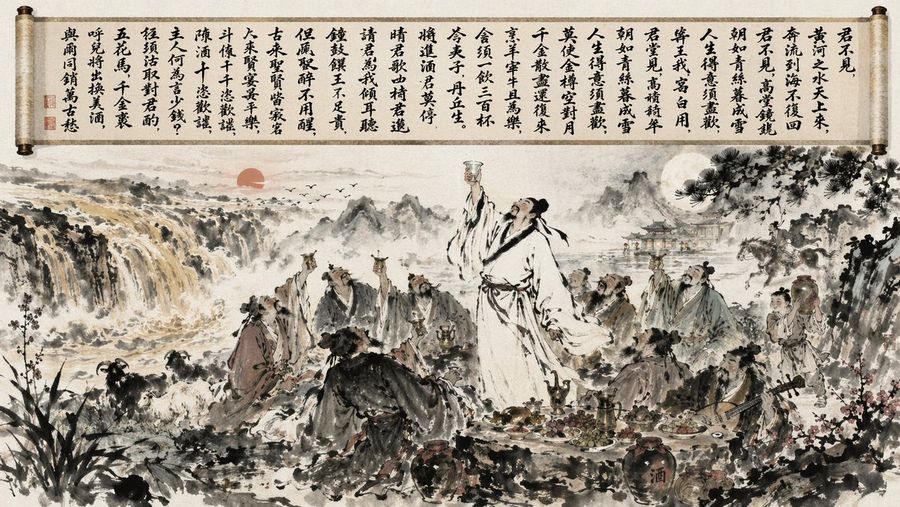 君不見,
黃河之水天上來,
奔流到海不復回
君不見,高堂鏡
朝如青絲暮成雪
人生得意須盡歡,
王我,宮白用,
君堂見,高積
朝如青絲暮成雪
人生得意須盡歡,
莫使金樽空對月
千金散盡還復來
烹羊宰牛且為樂,
會須一飲三百杯
岑夫子,丹丘生。
將進酒君莫停
晴君歌四椅君進
請君為我傾耳聽
鐘鼓饌王不足貴
但願醉不用醒,
古來聖賢皆寂
來賢宴平樂,
斗千千恣歡謔,
陳酒十恣歡謔,
主人何為言少錢?
徑須沽取對君酌,
五花馬,千金裘
呼兒將出換美酒,
與爾同銷萬古愁
酒